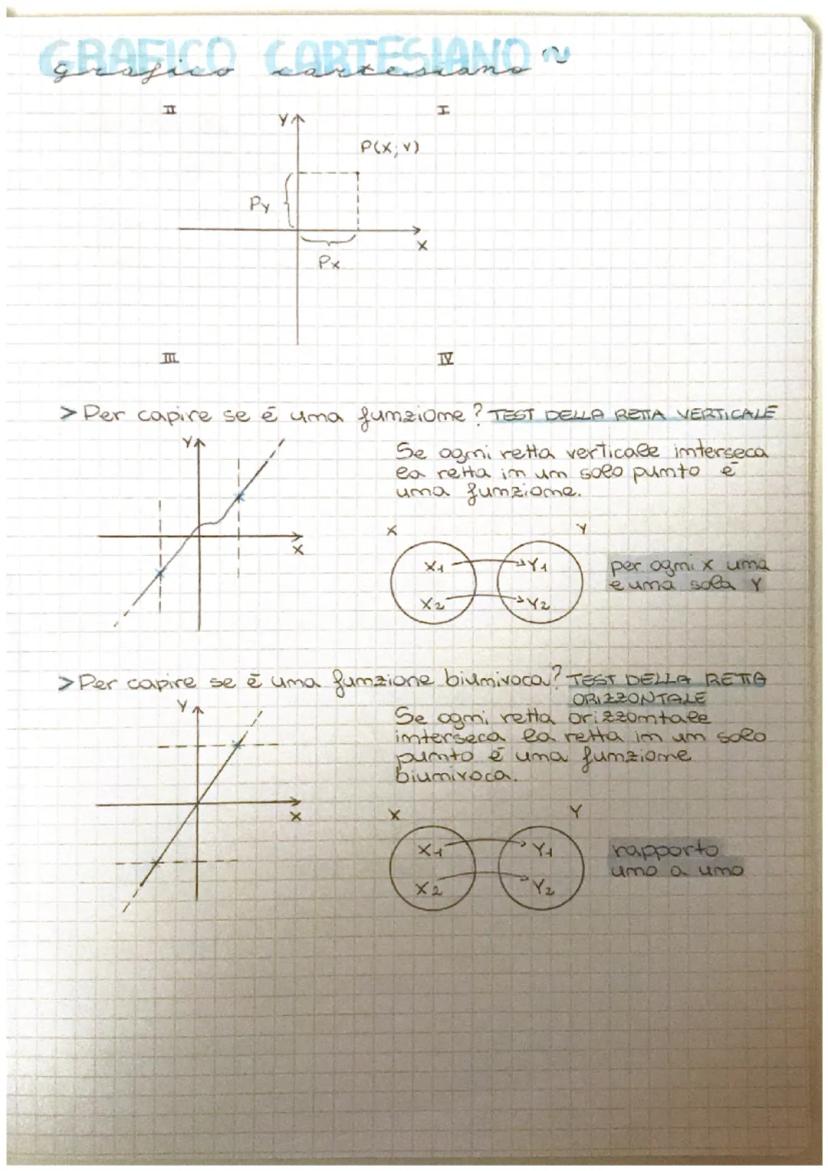 GRAFICO CARTESIANO ~
grafico cartesiano
II
I
Y
P(X; Y)
Py
X
Px
III
IV
> Per capire se é uma fumziome? TEST DELLA RETTA VERTICALE
Y
Se ogmi retta verticale imterseca
la retta im um solo pumto é
uma fumziome.
X
X
Y
X1
Y1
X2
Y2
per ogmi x uma
e uma sola Y
> Per capire se é uma fumzione biumivoca? TEST DELLA RETTA
ORIZZONTALE
Y
Se ogmi retta orizzomtale
imterseca la retta im um solo
pumto é uma fumziome
biumivoca.
X
X
Y
X1
Y1
X2
Y2
rapporto
umo a umo